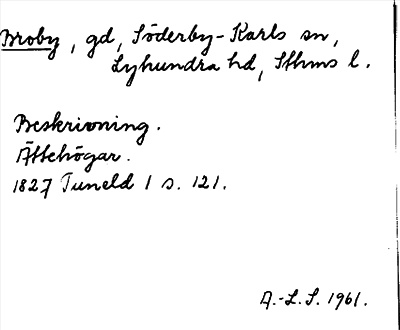 Broby, gd, Söderby-Karls sn,
Lyhundra hd, Sthms l.
Beskrivning.
Ättehögar.
1827 Tuneld 1 s. 121.
A.-L.S. 1961.